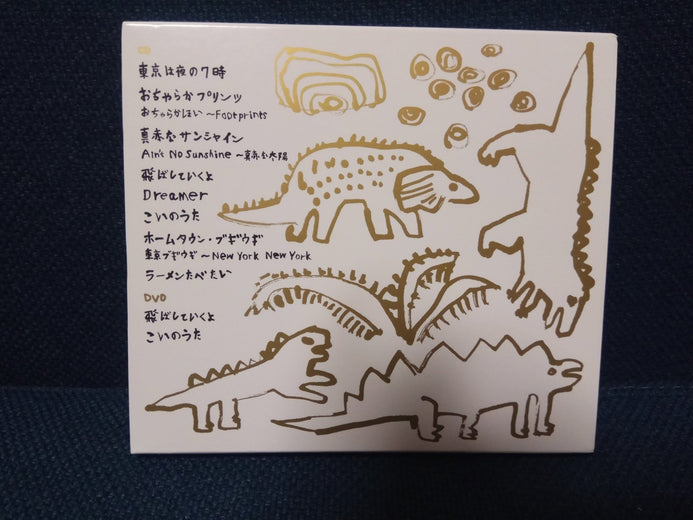 CD
東京は夜の7時
おちゃらかプリンツ
おちゃらかほい 〜Footprints
真赤なサンシャイン
Ain't No Sunshine 〜真赤な太陽
飛ばしていくよ
Dreamer
こいのうた
ホームタウン・ブギウギ
東京ブギウギ 〜 New York New York
ラーメンたべたい
DVD
飛ばしていくよ
こいのうた